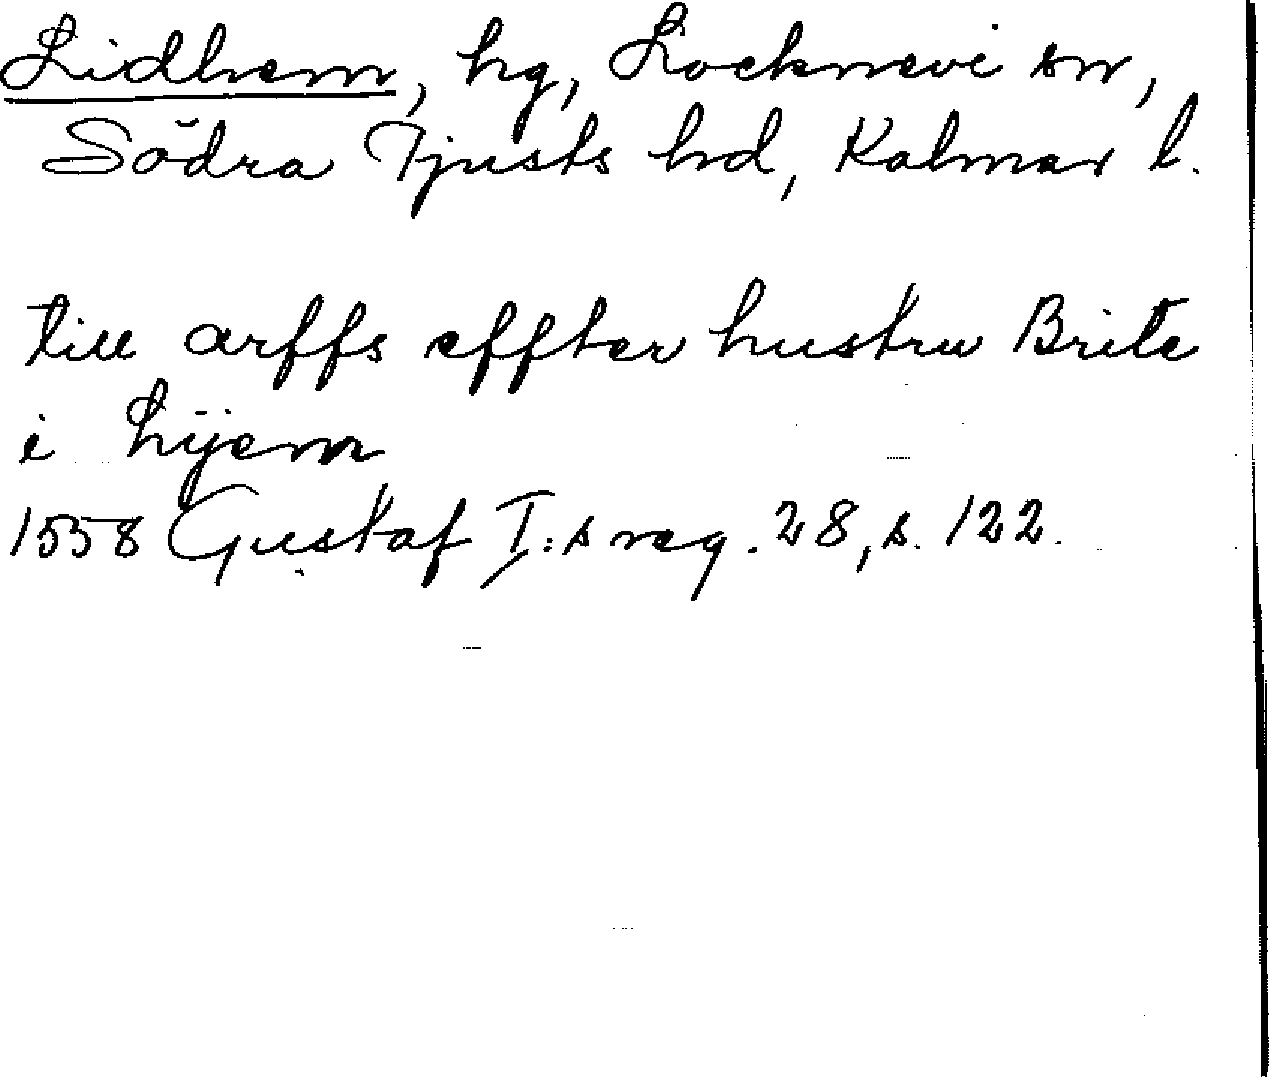 Lidhem, hg, Locknevi sn,
Södra Tjusts hd, Kalmar l.
till arffs effter hustru Brite
i Lijem
1558 Gustaf I:s reg. 28, s. 122.